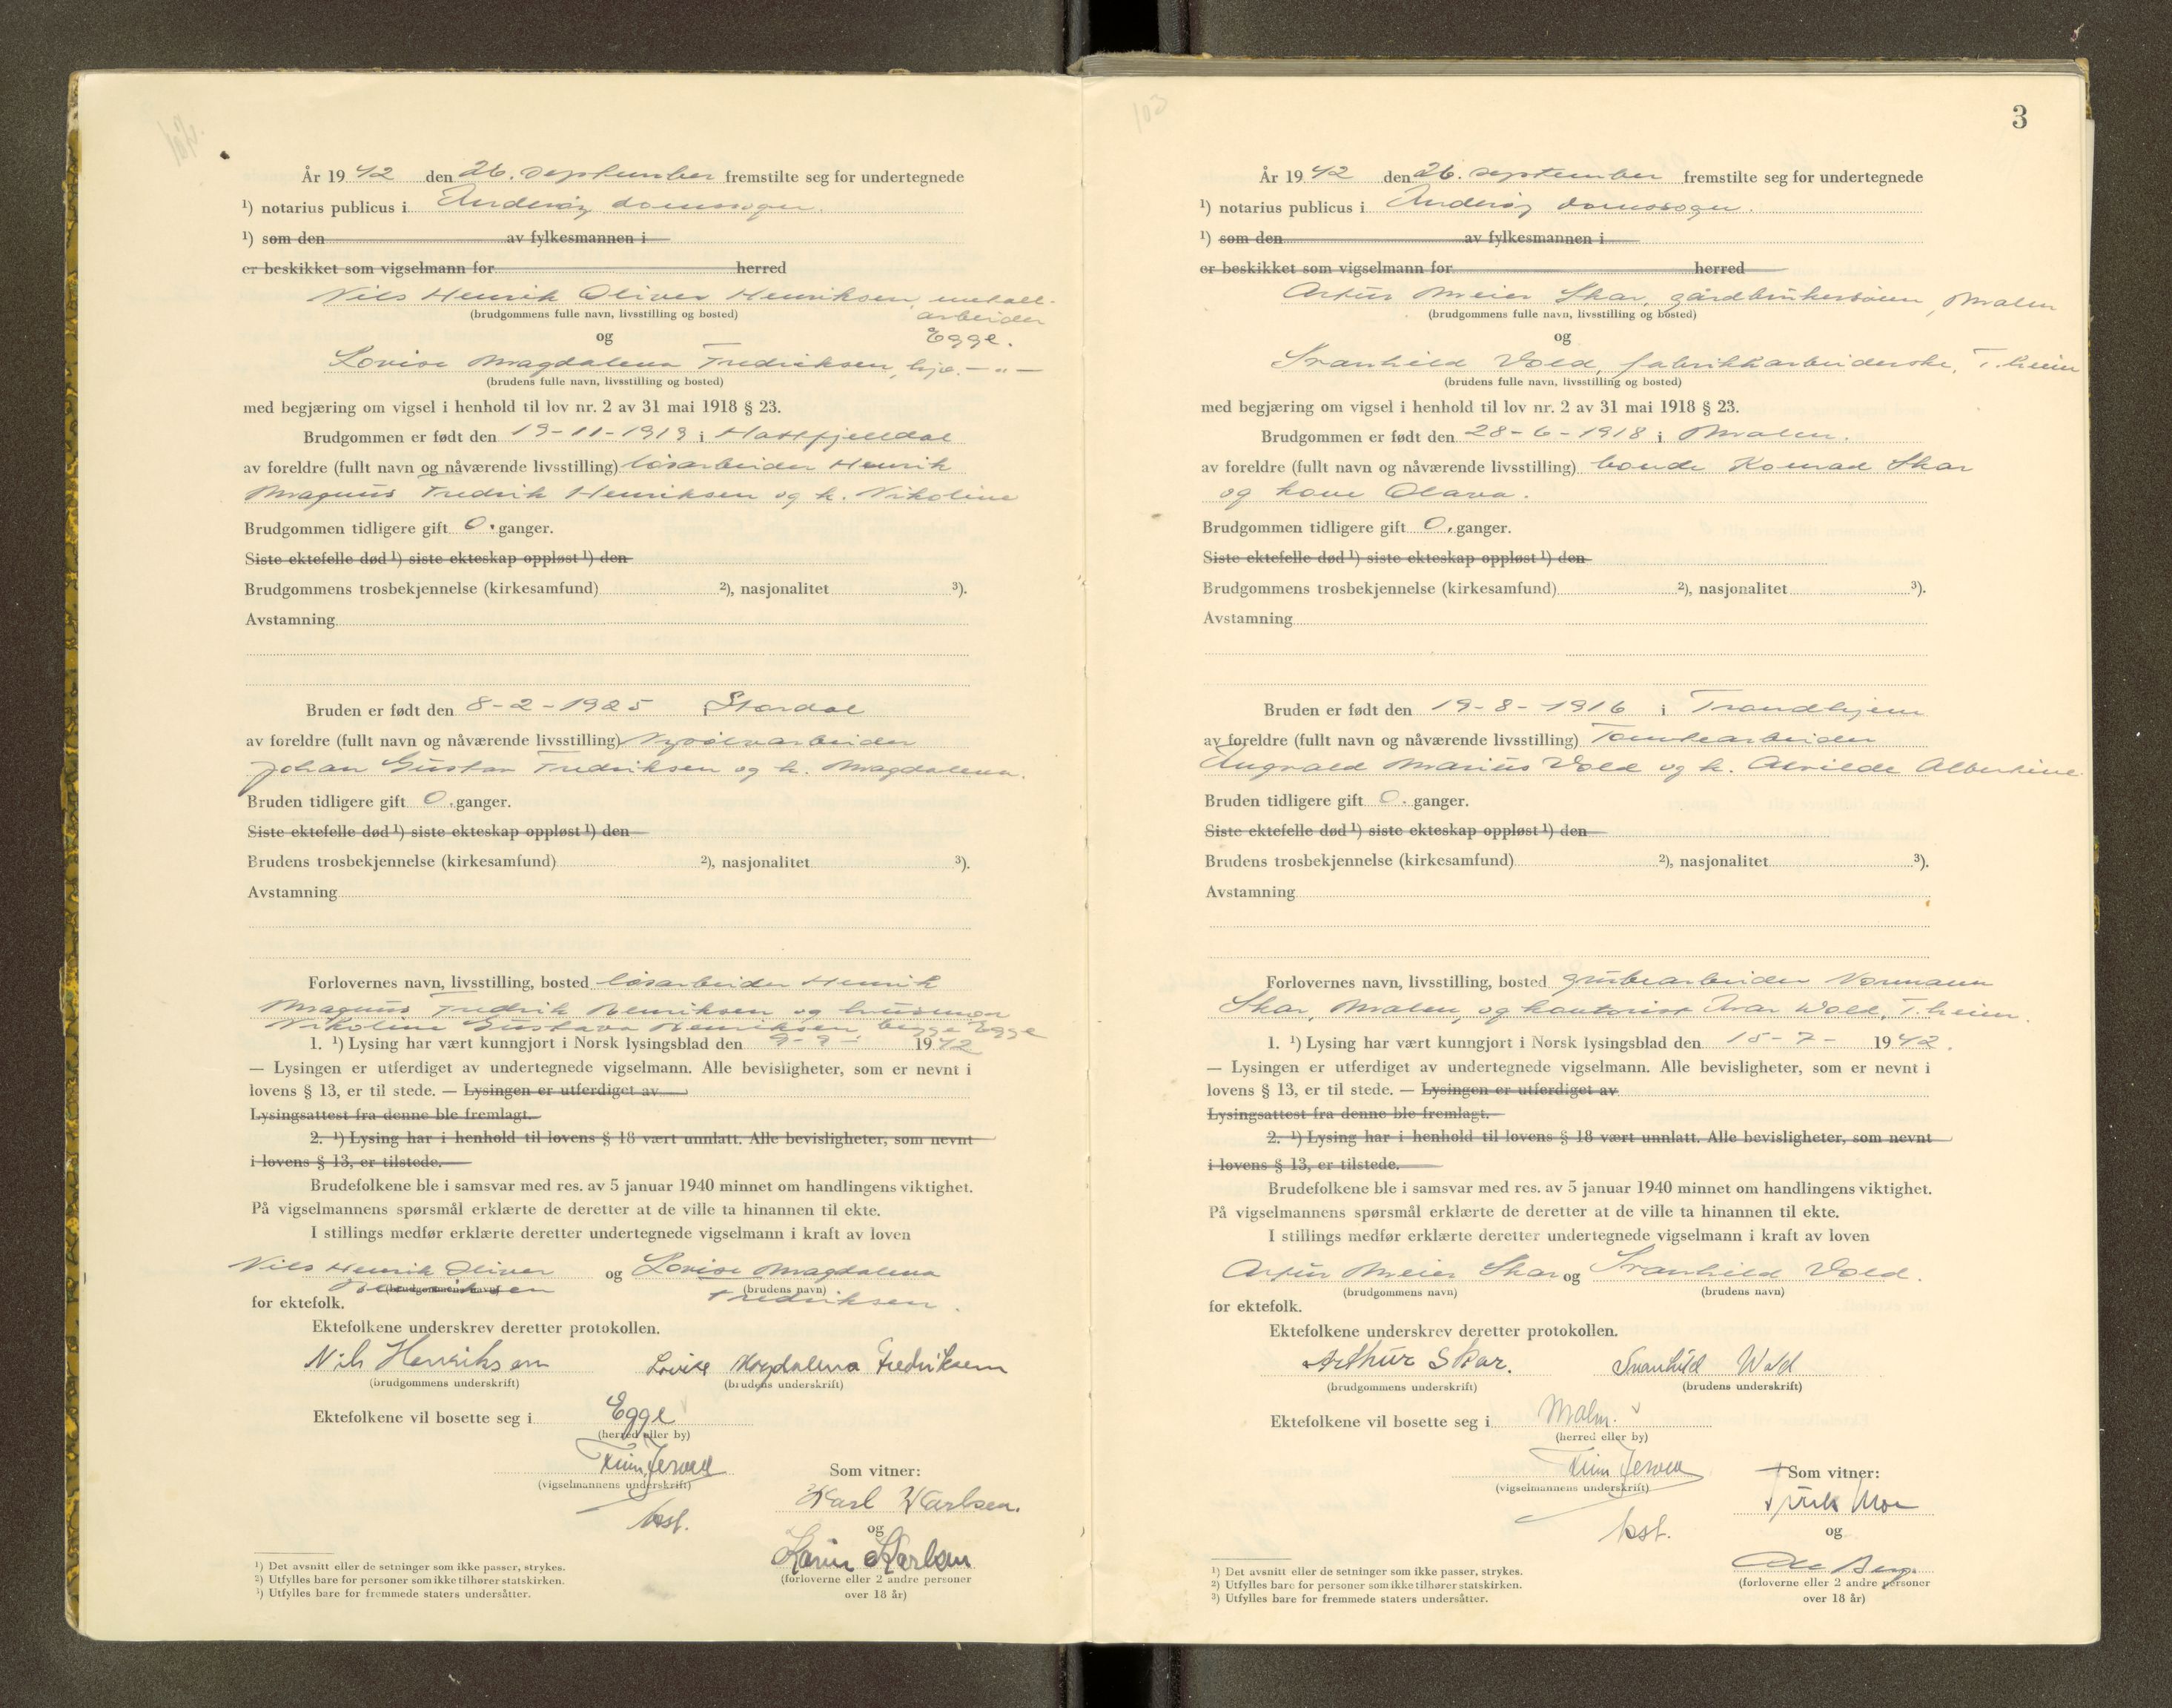 År 19 42 den 26. september fremstilte seg for undertegnede
¹) notarius publicus i Inderøy domssogn.
¹) som den av fylkesmannen i
er beskikket som vigselmann for herred
Nils Henrik Oliver Henriksen, metall-
(brudgommens fulle navn, livsstilling og bosted) arbeider
og Egge.
Lovise Magdalena Fredriksen, hje. -"-
(brudens fulle navn, livsstilling og bosted)
med begjæring om vigsel i henhold til lov nr. 2 av 31 mai 1918 § 23.
Brudgommen er født den 19-11-1919 i Hattfjelldal
av foreldre (fullt navn og nåværende livsstilling) løsarbeider Henrik
Magnus Fredrik Henriksen og h. Nikoline
Brudgommen tidligere gift 0. ganger.
Siste ektefelle død ¹) siste ekteskap oppløst ¹) den
Brudgommens trosbekjennelse (kirkesamfund) ²), nasjonalitet ³).
Avstamning
Bruden er født den 8-2-1925 i Stordal
av foreldre (fullt navn og nåværende livsstilling)
Johan Gustav Fredriksen og h. Magdalena.
Bruden tidligere gift 0. ganger.
Siste ektefelle død ¹) siste ekteskap oppløst ¹) den
Brudens trosbekjennelse (kirkesamfund) ²), nasjonalitet ³).
Avstamning
Forlovernes navn, livsstilling, bosted løsarbeider Henrik
Magnus Fredrik Henriksen og husmor
Nikoline Gustava Henriksen begge Egge
1. ¹) Lysing har vært kunngjort i Norsk lysingsblad den 9-9- 19 42
— Lysingen er utferdiget av undertegnede vigselmann. Alle bevisligheter, som er nevnt i
lovens § 13, er til stede. — Lysingen er utferdiget av
Lysingsattest fra denne ble fremlagt.
2. ¹) Lysing har i henhold til lovens § 18 vært unnlatt. Alle bevisligheter, som nevnt
i lovens § 13, er tilstede.
Brudefolkene ble i samsvar med res. av 5 januar 1940 minnet om handlingens viktighet.
På vigselmannens spørsmål erklærte de deretter at de ville ta hinannen til ekte.
I stillings medfør erklærte deretter undertegnede vigselmann i kraft av loven
Nils Henrik Oliver og Lovise Magdalena
Henriksen (brudgommens navn) (brudens navn) Fredriksen.
for ektefolk.
Ektefolkene underskrev deretter protokollen.
Nils Henriksen Lovise Magdalena Fredriksen
(brudgommens underskrift) (brudens underskrift)
Ektefolkene vil bosette seg i Egge
(herred eller by)
Som vitner:
(vigselmannens underskrift)
Karl Karlsen.
og
Karin Karlsen
(forloverne eller 2 andre personer
over 18 år)
¹) Det avsnitt eller de setninger som ikke passer, strykes.
²) Utfylles bare for personer som ikke tilhører statskirken.
³) Utfylles bare for fremmede staters undersåtter.
103
3
År 19 42 den 26. september fremstilte seg for undertegnede
¹) notarius publicus i Inderøy domssogn.
¹) som den av fylkesmannen i
er beskikket som vigselmann for herred
Artur Meier Skar, gårdbrukersønn, Malm
(brudgommens fulle navn, livsstilling og bosted)
og
Svanhild Vold, fabrikkarbeiderske, T.heim
(brudens fulle navn, livsstilling og bosted)
med begjæring om vigsel i henhold til lov nr. 2 av 31 mai 1918 § 23.
Brudgommen er født den 28-6-1918 i Malm.
av foreldre (fullt navn og nåværende livsstilling) bonde Konrad Skar
og kone Olava.
Brudgommen tidligere gift 0. ganger.
Siste ektefelle død ¹) siste ekteskap oppløst ¹) den
Brudgommens trosbekjennelse (kirkesamfund) ²), nasjonalitet ³).
Avstamning
Bruden er født den 19-8-1916 i Trondhjem
av foreldre (fullt navn og nåværende livsstilling) Tomtearbeider
Ingvald Marius Vold og h. Alvilde Albertine.
Bruden tidligere gift 0. ganger.
Siste ektefelle død ¹) siste ekteskap oppløst ¹) den
Brudens trosbekjennelse (kirkesamfund) ²), nasjonalitet ³).
Avstamning
Forlovernes navn, livsstilling, bosted grubearbeider Normann
Skar, Malm, og kontorist Ivar Wold, T.heim.
1. ¹) Lysing har vært kunngjort i Norsk lysingsblad den 15-7- 19 42.
— Lysingen er utferdiget av undertegnede vigselmann. Alle bevisligheter, som er nevnt i
lovens § 13, er til stede. — Lysingen er utferdiget av
Lysingsattest fra denne ble fremlagt.
2. ¹) Lysing har i henhold til lovens § 18 vært unnlatt. Alle bevisligheter, som nevnt
i lovens § 13, er tilstede.
Brudefolkene ble i samsvar med res. av 5 januar 1940 minnet om handlingens viktighet.
På vigselmannens spørsmål erklærte de deretter at de ville ta hinannen til ekte.
I stillings medfør erklærte deretter undertegnede vigselmann i kraft av loven
Artur Meier Skar og Svanhild Vold.
(brudgommens navn) (brudens navn)
for ektefolk.
Ektefolkene underskrev deretter protokollen.
Arthur Skar. Svanhild Wold
(brudgommens underskrift) (brudens underskrift)
Ektefolkene vil bosette seg i Malm.
(herred eller by)
Som vitner:
(vigselmannens underskrift)
Moe
og
(forloverne eller 2 andre personer
over 18 år)
¹) Det avsnitt eller de setninger som ikke passer, strykes.
²) Utfylles bare for personer som ikke tilhører statskirken.
³) Utfylles bare for fremmede staters undersåtter.